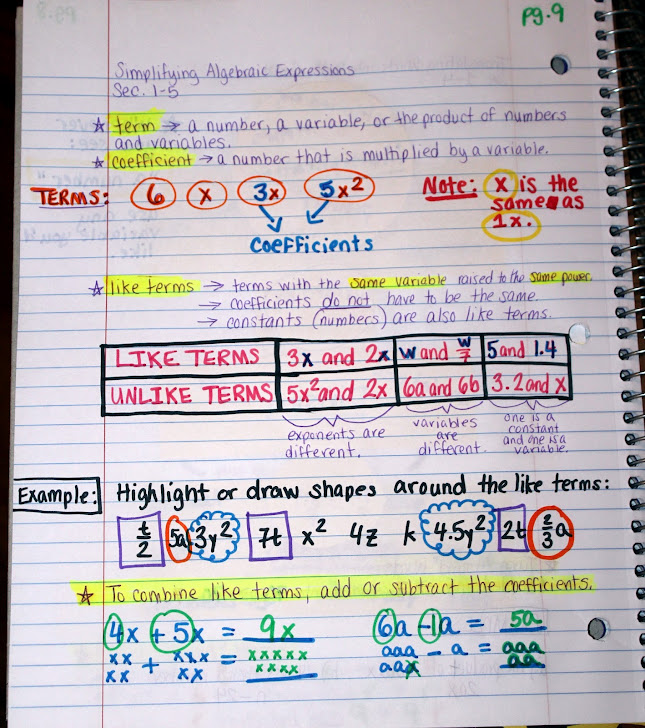 pg.9
Simplifying Algebraic Expressions
Sec. 1-5
☆ term → a number, a variable, or the product of numbers
and variables.
☆ coefficient → a number that is multiplied by a variable.
TERMS: 6 x 3x 5x²
Coefficients
Note: x is the
same as
1x.
☆ like terms → terms with the same variable raised to the same power.
→ coefficients do not have to be the same.
→ constants (numbers) are also like terms.
LIKE TERMS 3x and 2x w and w/7 5 and 1.4
UNLIKE TERMS 5x² and 2x 6a and 6b 3.2 and x
exponents are
different.
variables
are
different.
one is a
constant
and one is a
variable.
Example: Highlight or draw shapes around the like terms:
t/2 5a 3y² 7t x² 4z k 4.5y² 2t 2/3a
☆ To combine like terms, add or subtract the coefficients.
4x + 5x = 9x
xx + xxx = xxxxx
xx xx xxxx
6a - 1a = 5a
aaa - a = aaa
aaa aa